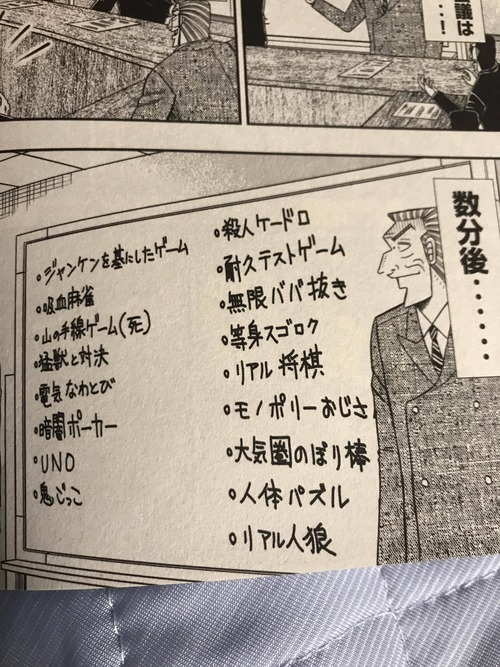 議は
…！
数分後……
・ジャンケンを基にしたゲーム
・吸血麻雀
・山の手線ゲーム(死)
・猛獣と対決
・電気なわとび
・暗闇ポーカー
・UNO
・鬼ごっこ
・殺人ケードロ
・耐久テストゲーム
・無限ババ抜き
・等身スゴロク
・リアル将棋
・モノポリーおじさ
・大気圏のぼり棒
・人体パズル
・リアル人狼